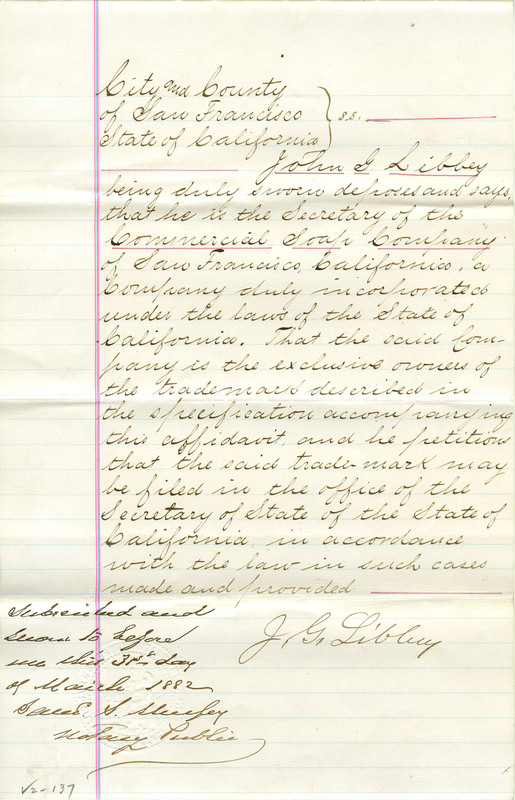 City and County
of San Francisco } s.s.
State of California
John G. Libbey
being duly sworn deposes and says,
that he is the Secretary of the
Commercial Soap Company
of San Francisco, California, a
Company duly incorporated
under the laws of the State of
California. That the said Com-
pany is the exclusive owners of
the trademark described in
the specification accompanying
this affidavit, and he petitions
that the said trade-mark may
be filed in the office of the
Secretary of State of the State of
California, in accordance
with the law in such cases
made and provided
J. G. Libbey
Subscribed and
Sworn to before
me this 31st day
of March 1882
Saml S.
Notary Public
V2-137